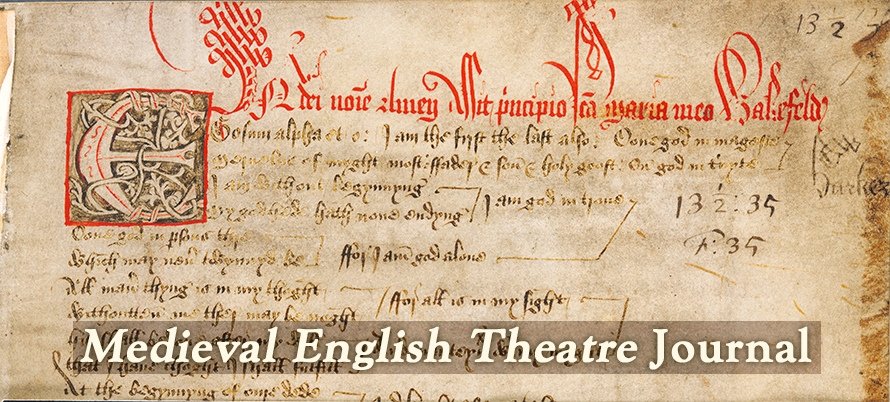 13 2
IN dei noīe Amen Assit pͥncipio Scā maria meo Wakefeld
Ego sum alpha et o : I am the first the last also : Oone god in mageste
Meruelus of myght most : ffader & son & holy goost : On god in
I am without begynnyng
I am god in trone
My godhede hath none endyng
13 2 : 35
Oone god in psons thre
F. 35
Which may neuͥ twynnyd be ffor I am god alone
All man̄ thyng is in my thoght
Withoutten me ther may be noght ffor all is in my sight
that I haue thoght I shall fulfill
At the begynnyng of oure dede
Medieval English Theatre Journal